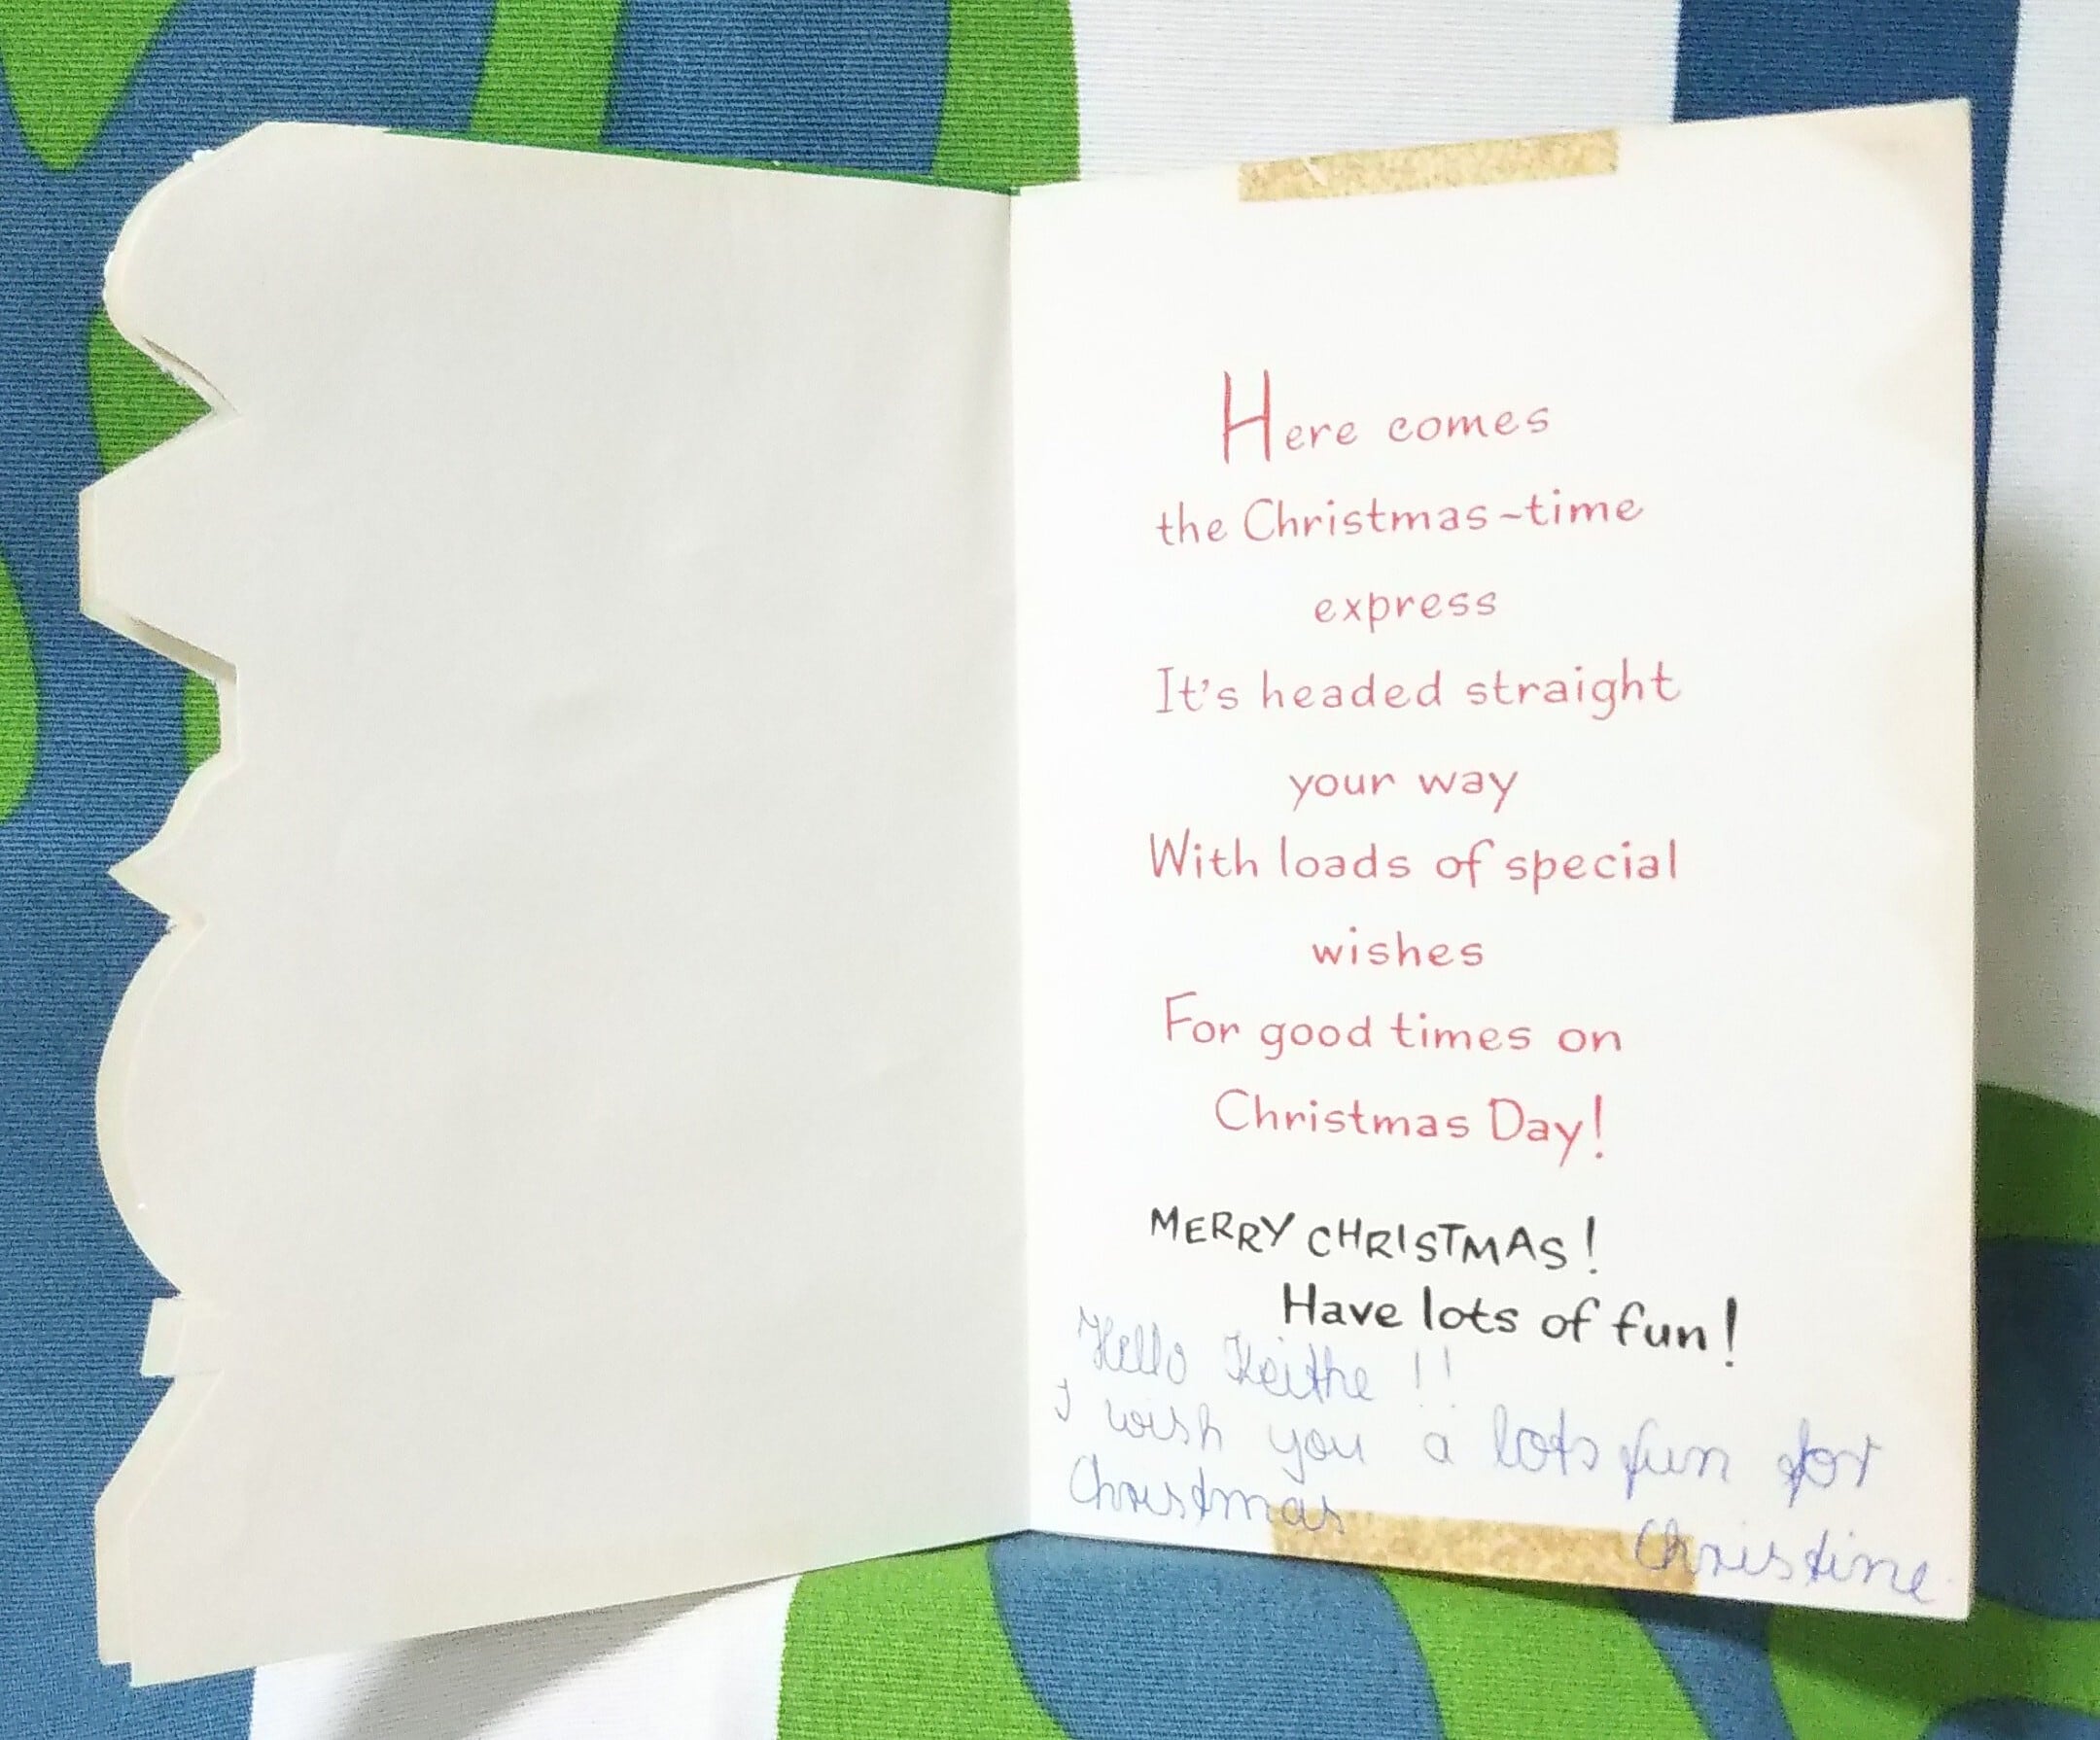 Here comes
the Christmas-time
express
It's headed straight
your way
With loads of special
wishes
For good times on
Christmas Day!
MERRY CHRISTMAS!
Have lots of fun!
Hello Keithe !!
I wish you a lots fun for
Christmas
Christine